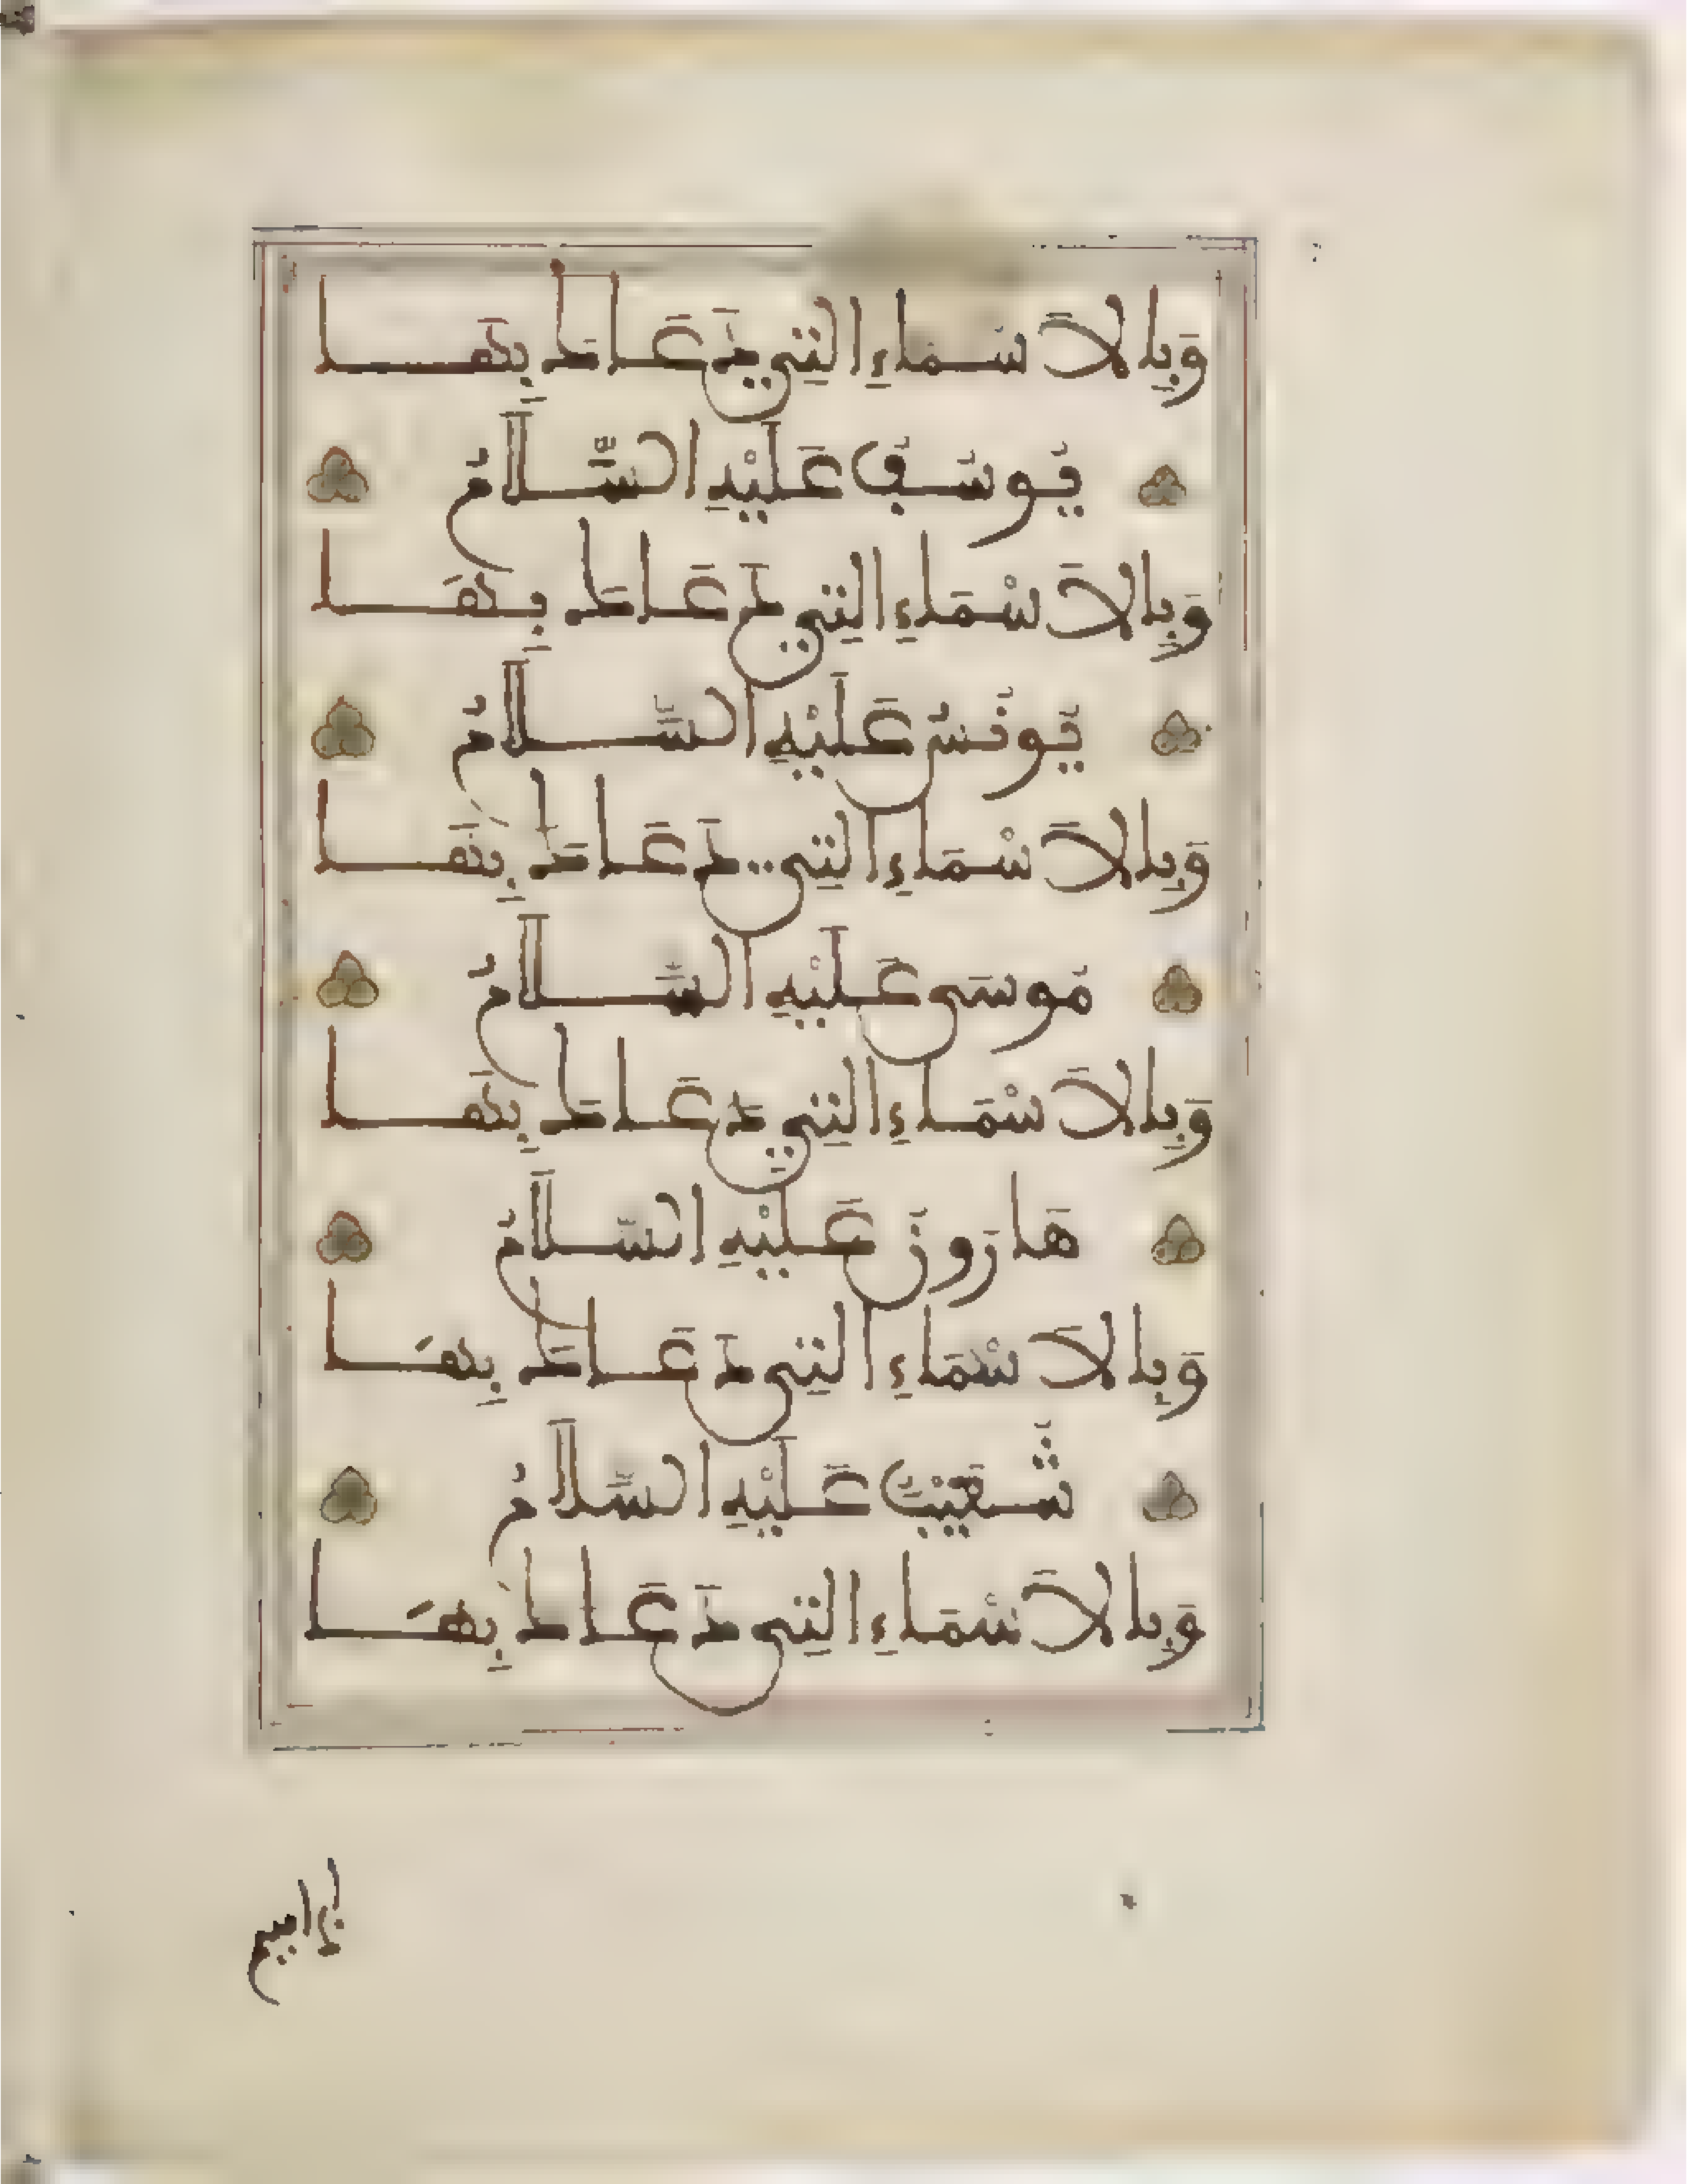 وَبِالاَسْمَاءِ التِي دَعَاكَ بِهَا
يُوسُفُ عَلَيْهِ السَّلَامُ
وَبِالاَسْمَاءِ التِي دَعَاكَ بِهَا
يُونُسُ عَلَيْهِ السَّلَامُ
وَبِالاَسْمَاءِ التِي دَعَاكَ بِهَا
مُوسَى عَلَيْهِ السَّلَامُ
وَبِالاَسْمَاءِ التِي دَعَاكَ بِهَا
هَارُونُ عَلَيْهِ السَّلَامُ
وَبِالاَسْمَاءِ التِي دَعَاكَ بِهَا
شُعَيْبٌ عَلَيْهِ السَّلَامُ
وَبِالاَسْمَاءِ التِي دَعَاكَ بِهَا